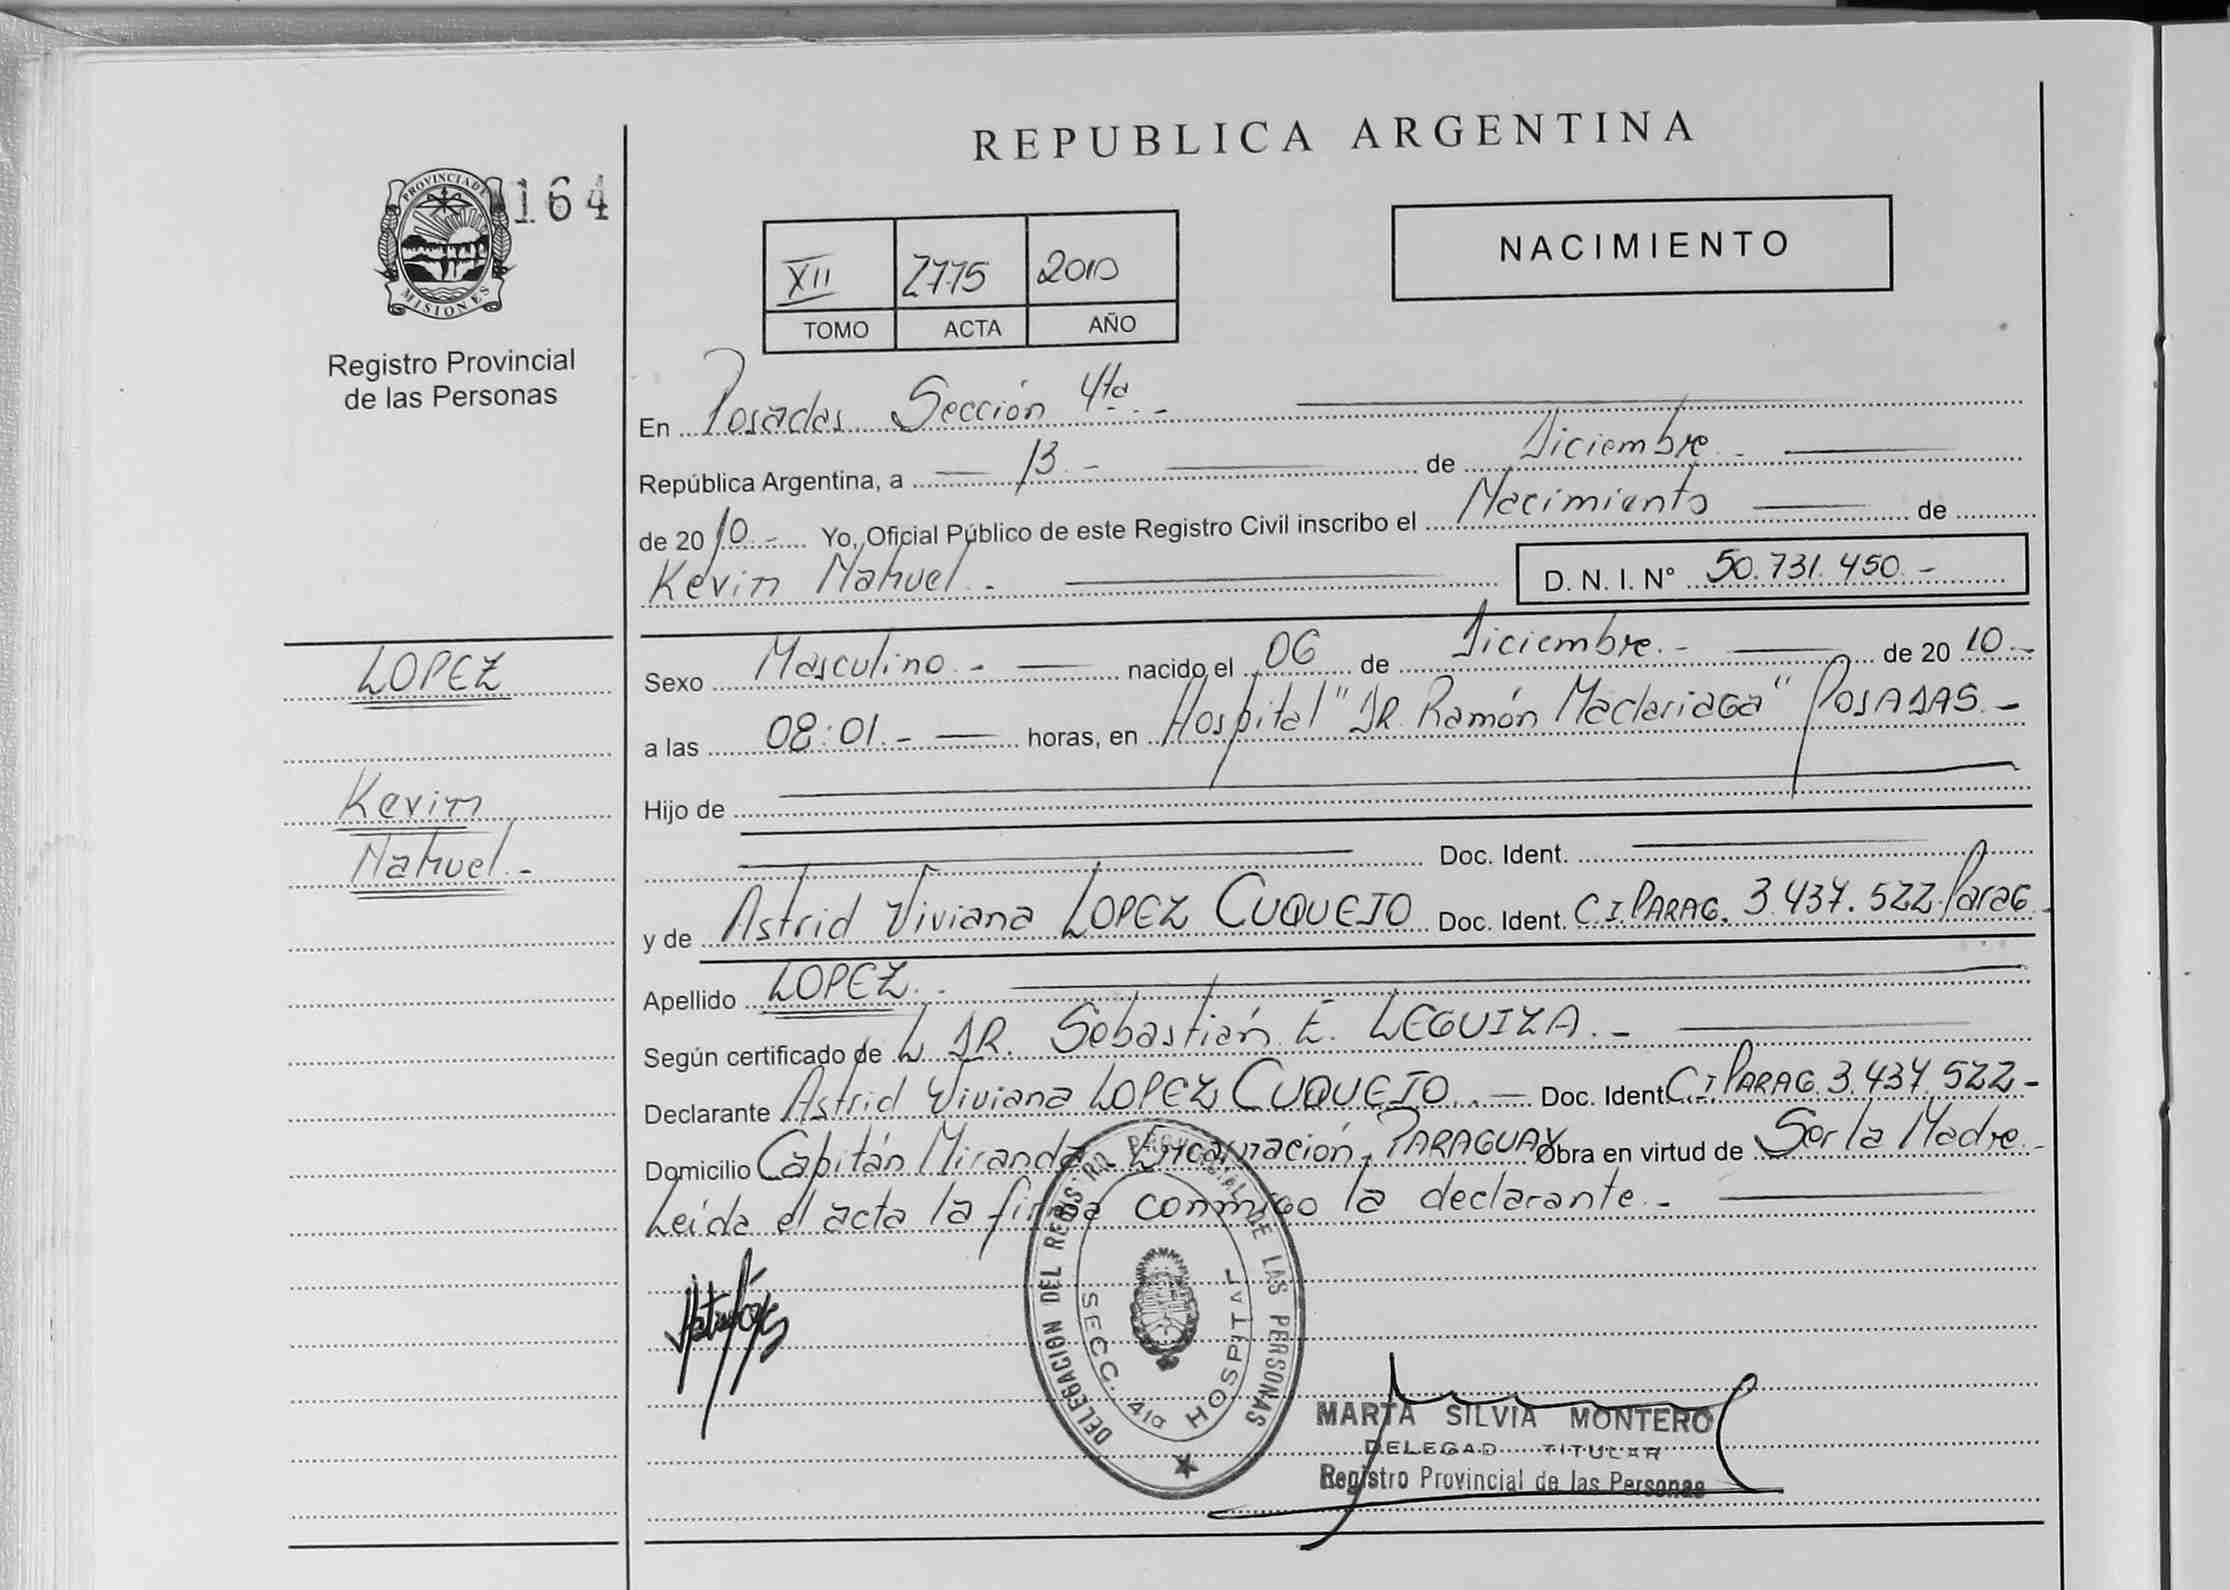 REPUBLICA ARGENTINA
PROVINCIA DE
MISIONES
164
Registro Provincial
de las Personas
XII 2775 2010
TOMO ACTA AÑO
NACIMIENTO
En Posadas Sección 4ta.-
República Argentina, a 13.- de Diciembre.-
de 2010.- Yo, Oficial Público de este Registro Civil inscribo el Nacimiento de
Kevin Nahuel.- D. N. I. Nº 50.731.450.-
LOPEZ
Kevin
Nahuel.-
Sexo Masculino.- nacido el 06 de Diciembre.- de 2010.-
a las 08:01.- horas, en Hospital "DR. Ramón Madariaga" POSADAS.-
Hijo de
Doc. Ident.
y de Astrid Viviana LOPEZ CUQUEJO Doc. Ident. C.I. PARAG. 3.437.522 Parag.
Apellido LOPEZ.-
Según certificado de L DR. Sebastián E. LEGUIZA.-
Declarante Astrid Viviana LOPEZ CUQUEJO.- Doc. Ident. C.I. PARAG. 3.437.522-
Domicilio Capitán Miranda - Encarnación, PARAGUAY Obra en virtud de Ser la Madre.-
Leída el acta la firma conmigo la declarante.-
DELEGACION DEL REGISTRO PROVINCIAL DE LAS PERSONAS
SECC. 4ta HOSPITAL
MARTA SILVIA MONTERO
DELEGAD TITULAR
Registro Provincial de las Personas